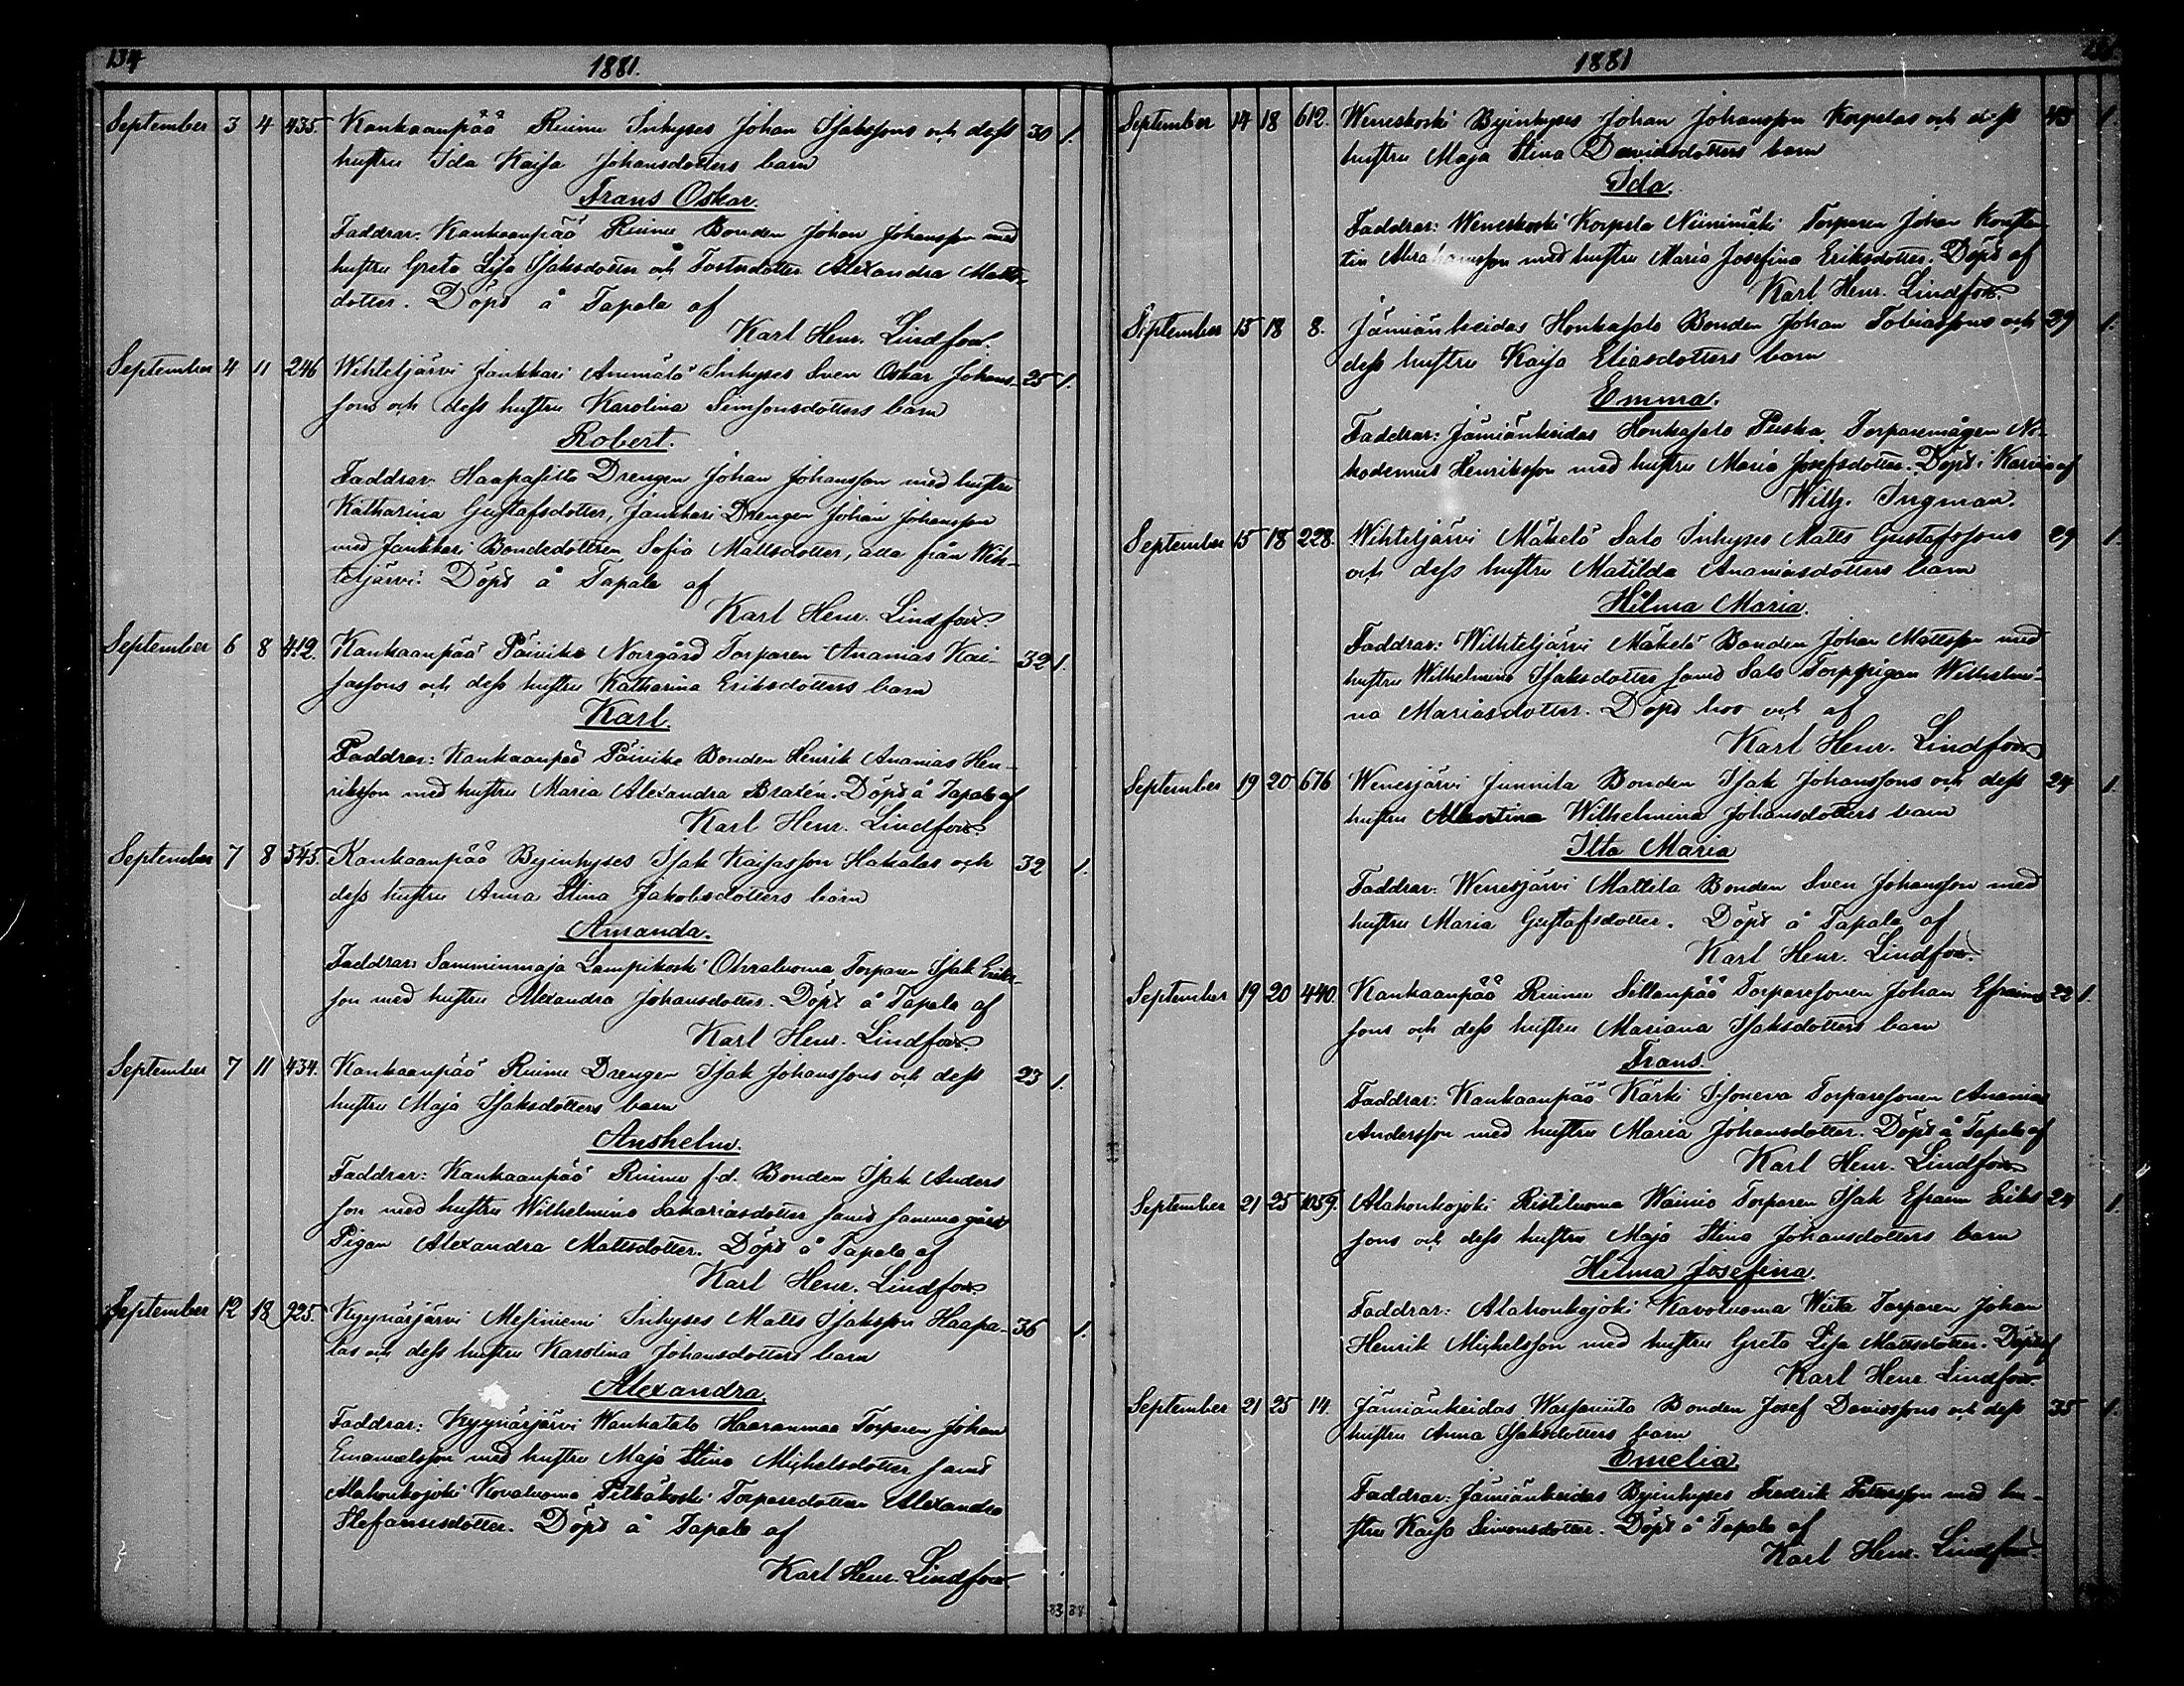 134
1881.
September 3 4 435. Kankaanpää Ruinu Inhyses Johan Isakssons och dess 30 1.
hustru Ida Kaisa Johansdotters barn
Frans Oskar.
Faddrar: Kankaanpää Ruinu Bonden Johan Johansson med
hustru Greta Lisa Isaksdotter och Alexandra Matts-
dotter. Döpt å Tapala af
Karl Henr. Lindfors.
September 4 11 246 Wihteljärvi Jankkari Ammälä Inhyses Sven Oskar Johans- 25 1.
sons och dess hustru Karolina Simsonsdotters barn
Robert.
Faddrar: Haapasilta Drengen Johan Johansson med hustru
Katharina Gustafsdotter, Jankkari Drengen Johan Johansson
med Jankkari Bondedottren Sofia Mattsdotter, alla från Wih-
teljärvi. Döpt å Tapala af
Karl Henr. Lindfors.
September 6 8 412. Kankaanpää Päivike Norrgård Torparen Ananias Kai-
sassons och dess hustru Katharina Eriksdotters barn 32 1.
Karl.
Faddrar: Kankaanpää Päivike Bonden Henrik Ananias Hen-
riksson med hustru Maria Alexandra Braxén. Döpt å Tapala af
Karl Henr. Lindfors.
September 7 8 545. Kankaanpää Byinhyses Isak Kaisasson Hakalas och 32 1.
dess hustru Anna Stina Jakobsdotters barn
Amanda.
Faddrar: Samminmaja Lampikoski Ohraluoma Torparen Isak Eriks-
son med hustru Alexandra Johansdotter. Döpt å Tapala af
Karl Henr. Lindfors.
September 7 11 434. Kankaanpää Ruinu Drengen Isak Johanssons och dess 23 1.
hustru Maja Isaksdotters barn
Anshelm.
Faddrar: Kankaanpää Ruinu f.d. Bonden Isak Anders
son med hustru Wilhelmina Sakariasdotter samt samma gårds
Pigan Alexandra Mattsdotter. Döpt å Tapala af
Karl Henr. Lindfors
September 12 18 925. Kyynärjärvi Mesiniemi Inhyses Matts Isaksson Haapa- 36 1.
las och dess hustru Karolina Johansdotters barn
Alexandra.
Faddrar: Kyynärjärvi Wankatalo Haaranmaa Torparen Johan
Emanuelsson med hustru Maja Stina Michelsdotter samt
Alahonkojoki Kovaluoma Pitkäkoski Torparedottren Alexandra
Stefansdotter. Döpt å Tapala af
Karl Henr. Lindfors
33 38
1881
September 14 18 612. Weneskoski Byinhyses Johan Johansson Korpelas och dess 43 1.
hustru Maja Stina Davidsdotters barn
Ida.
Faddrar: Weneskoski Korpela Niinimäki Torparen Johan Konstan
tin Abrahamsson med hustru Maria Josefina Eriksdotter. Döpt af
Karl Henr. Lindfors.
September 15 18 8. Jämiänkeidas Honkasalo Bonden Johan Tobiassons och 39 1.
dess hustru Kaisa Eliasdotters barn
Emma.
Faddrar: Jämiänkeidas Honkasalo Puska Torparemågen Ni-
kodemus Henriksson med hustru Maria Josefsdotter. Döpt i Karvia af
Wilh. Ingman.
September 15 18 228. Wihteljärvi Mäkelä Salo Inhyses Matts Gustafssons 29 1.
och dess hustru Matilda Ananiasdotters barn
Hilma Maria.
Faddrar: Wihteljärvi Mäkelä Bonden Johan Mattsson med
hustru Wilhelmina Isaksdotter samt Salo Torppigan Wilhelmi-
na Mariasdotter. Döpt hos och af
Karl Henr. Lindfors
September 19 20 676 Wenesjärvi Junnila Bonden Isak Johanssons och dess 24 1.
hustru Albertina Wilhelmina Johansdotters barn
Ilta Maria
Faddrar: Wenesjärvi Mattila Bonden Sven Johansson med
hustru Maria Gustafsdotter. Döpt å Tapala af
Karl Henr. Lindfors.
September 19 20 440. Kankaanpää Ruinu Sillanpää Torparesonen Johan Efraims 22 1.
sons och dess hustru Mariana Isaksdotters barn
Frans.
Faddrar: Kankaanpää Kärki Isoneva Torparesonen Ananias
Andersson med hustru Maria Johansdotter. Döpt å Tapala af
Karl Henr. Lindfors
September 21 25 1059. Alahonkojoki Ristiluoma Wainio Torparen Isak Efraim Eriks 24 1.
sons och dess hustru Maja Stina Johansdotters barn
Hilma Josefina.
Faddrar: Alahonkojoki Wiita Torparen Johan
Henrik Michelsson med hustru Greta Lisa Mattsdotter. Döpt af
Karl Henr. Lindfors.
September 21 25 14. Jämiänkeidas Bonden Josef Davidssons och dess 35 1.
hustru Anna Isaksdotters barn
Emelia.
Faddrar: Jämiänkeidas Byinhyses Fredrik Petersson med hu-
stru Kaisa Simonsdotter. Döpt å Tapala af
Karl Henr. Lindfors.